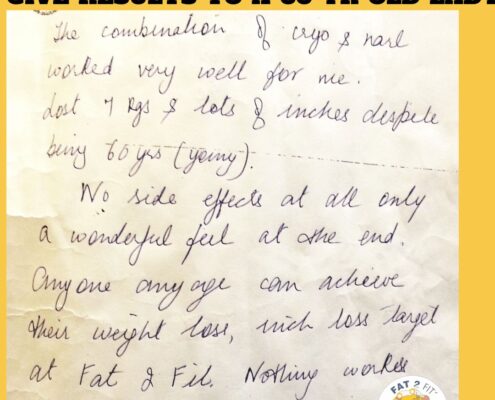 GIVE RESULTS TO A 60 YR OLD LADY
The combination of cryo & narl
worked very well for me.
Lost 7 Kgs & lots of inches despite
being 60 yrs (young).
No side effects at all only
a wonderful feel at the end.
Anyone any age can achieve
their weight loss, inch loss target
at Fat 2 Fit. Nothing workes
FAT 2 FIT